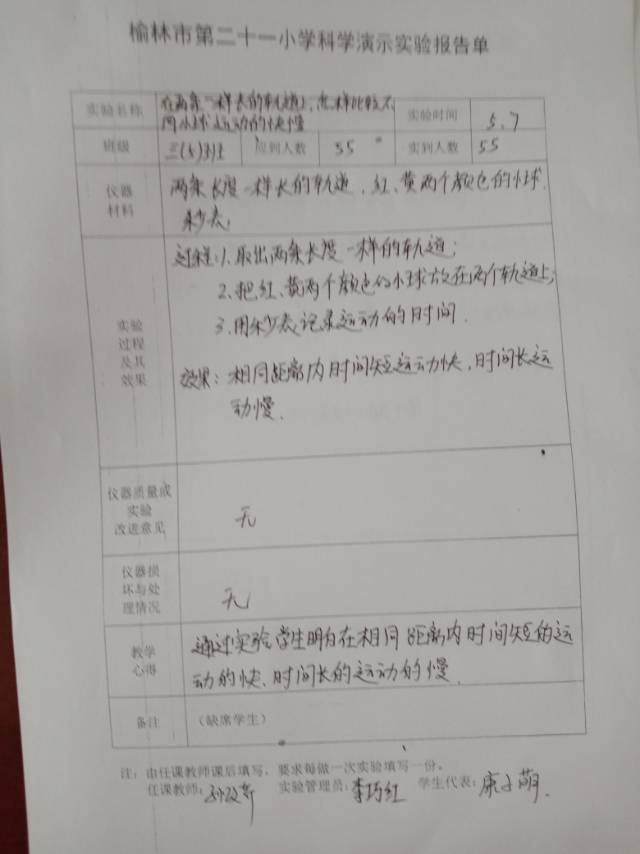 榆林市第二十一小学科学演示实验报告单
实验名称 在两条一样长的轨道上,怎样比较不
同小球运动的快慢 实验时间 5.7
班级 三(5)班 应到人数 55 实到人数 55
仪器
材料
两条长度一样长的轨道、红、黄两个颜色的小球、
秒表
实验
过程
及其
效果
过程:1.取出两条长度一样的轨道;
2.把红、黄两个颜色的小球放在两个轨道上;
3.用秒表记录运动的时间.
效果:相同距离内时间短运动快,时间长运
动慢.
仪器质量或
实验
改进意见
无
仪器损
坏与处
理情况
无
教学
心得
通过实验学生明白在相同距离内时间短的运
动的快、时间长的运动的慢.
备注 (缺席学生)
注:由任课教师课后填写,要求每做一次实验填写一份。
任课教师: 实验管理员:李巧红 学生代表:康子萌